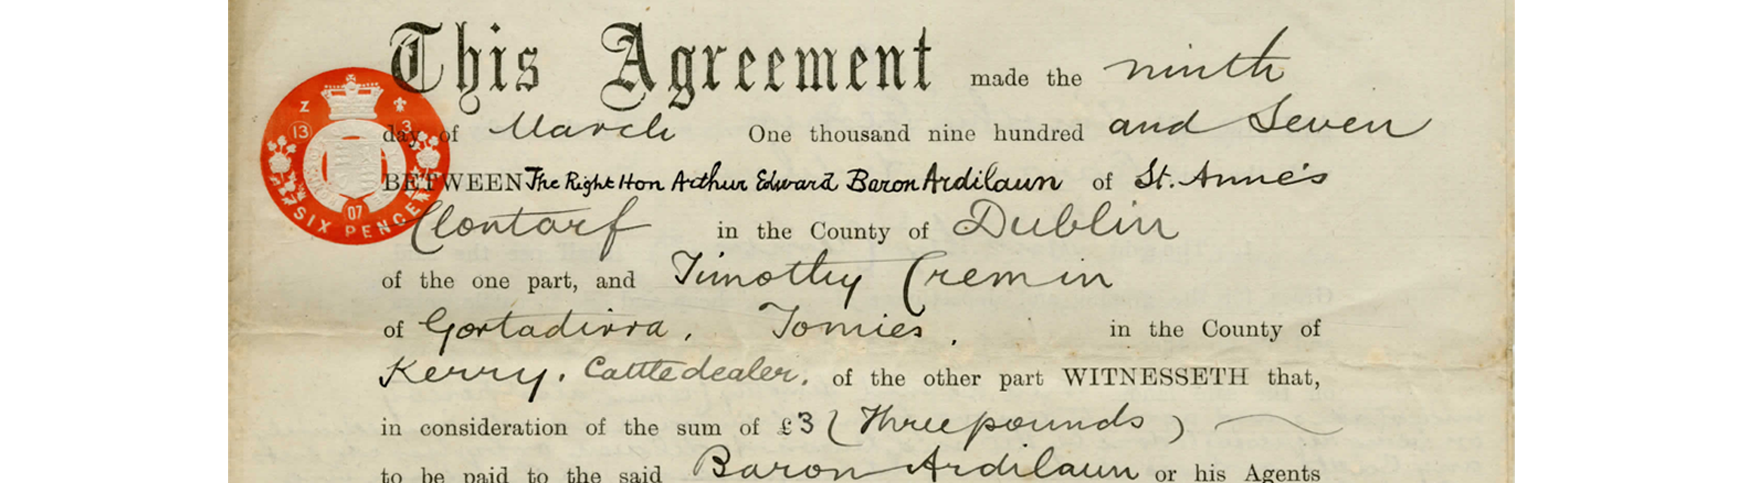 This Agreement made the ninth
day of March One thousand nine hundred and Seven
BETWEEN The Right Hon Arthur Edward Baron Ardilaun of St. Anne's
Clontarf in the County of Dublin
of the one part, and Timothy Cremin
of Gortadirra, Tomies, in the County of
Kerry, Cattledealer, of the other part WITNESSETH that,
in consideration of the sum of £3 (Three pounds)
to be paid to the said Baron Ardilaun or his Agents
Z
13
3
07
SIX PENCE